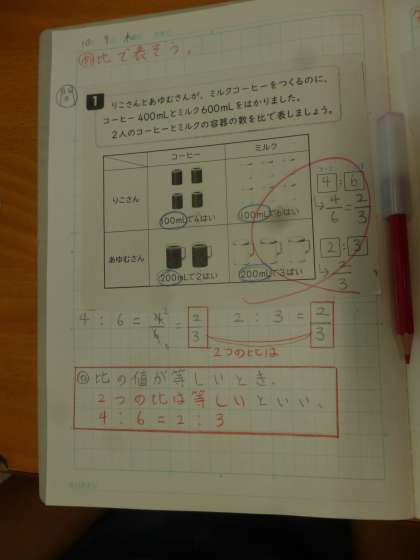 10. 9 木
め 比で表そう。
1 りこさんとあゆむさんが、ミルクコーヒーをつくるのに、
コーヒー400mLとミルク600mLをはかりました。
2人のコーヒーとミルクの容器の数を比で表しましょう。
コーヒー ミルク
りこさん
100mLで4はい 100mLで6はい
4:6
→4/6=2/3
あゆむさん
200mLで2はい 200mLで3ばい
2:3
→2/3
4:6=4/6=2/3 2:3=2/3
2つの比は
比の値が等しいとき、
2つの比は等しいといい、
4:6=2:3